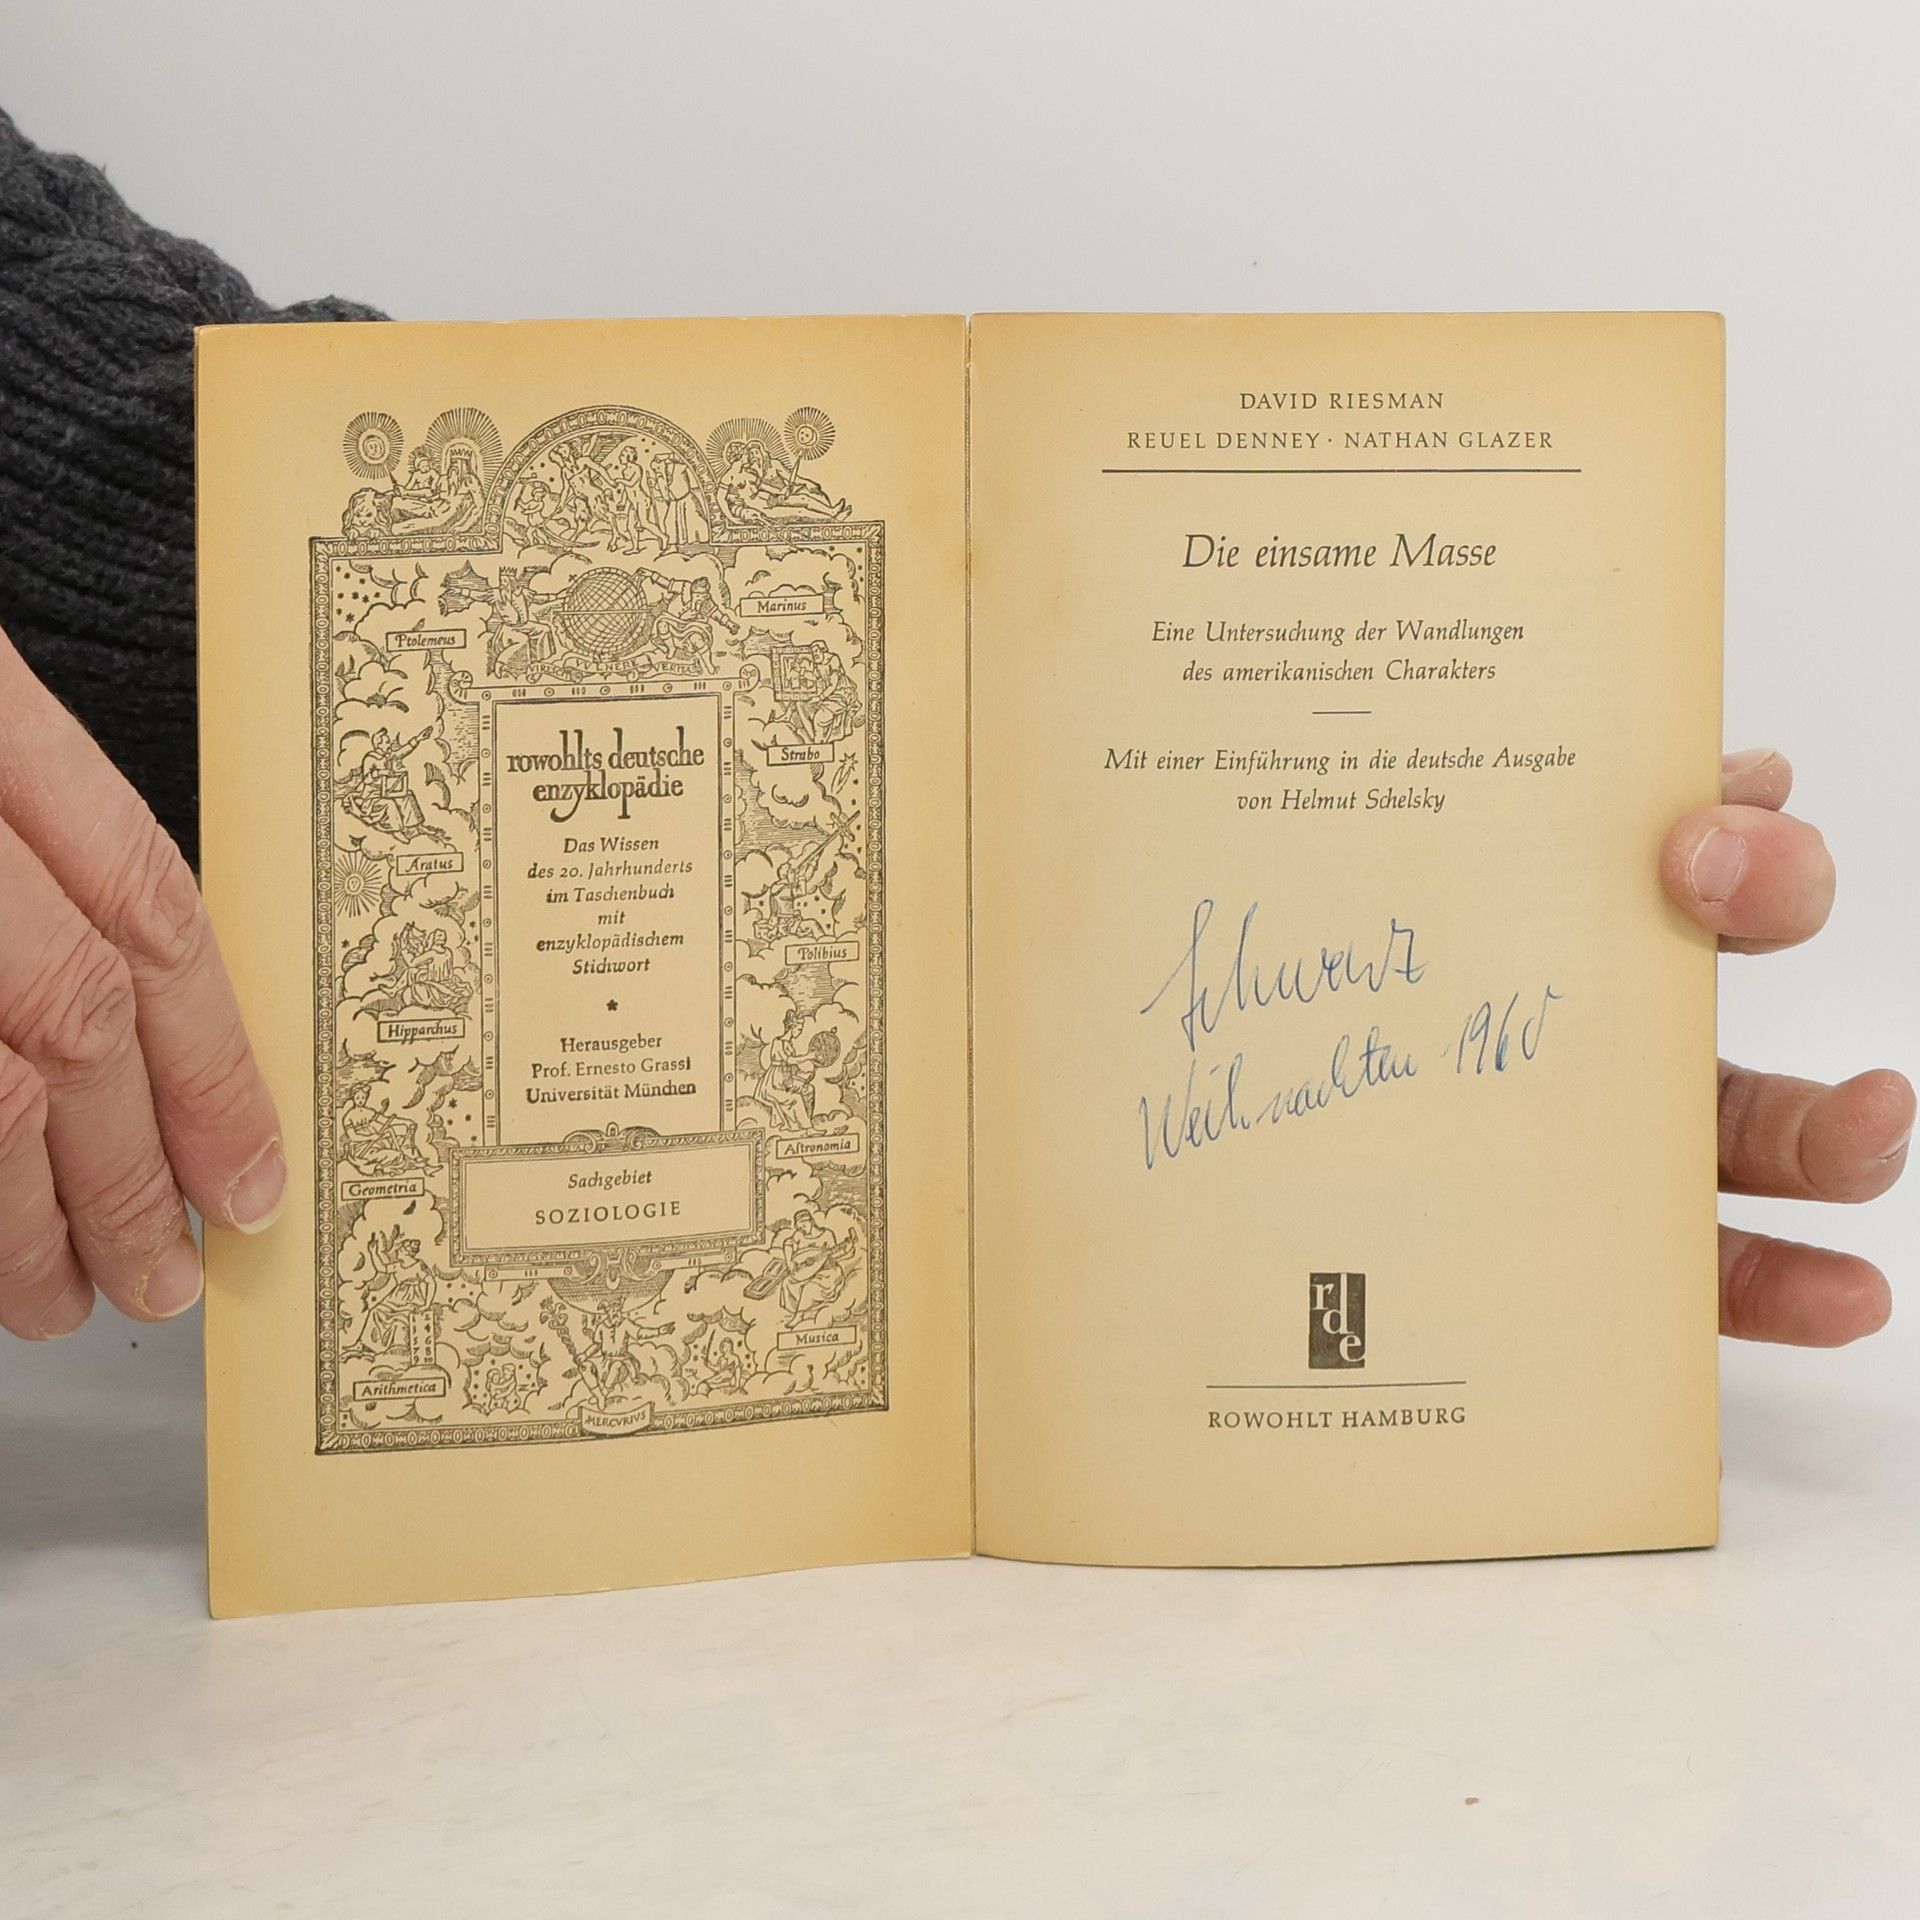 Ptolemeus
Marinus
VIRESCIT VVLNERE VERITAS
Strabo
Aratus
Polibius
Hipparchus
Astronomia
Geometria
Musica
Arithmetica
MERCVRIVS
rowohlts deutsche
enzyklopädie
Das Wissen
des 20. Jahrhunderts
im Taschenbuch
mit
enzyklopädischem
Stichwort
*
Herausgeber
Prof. Ernesto Grassi
Universität München
Sachgebiet
SOZIOLOGIE
DAVID RIESMAN
REUEL DENNEY · NATHAN GLAZER
Die einsame Masse
Eine Untersuchung der Wandlungen
des amerikanischen Charakters
Mit einer Einführung in die deutsche Ausgabe
von Helmut Schelsky
Schwarz
Weihnachten 1960
rde
ROWOHLT HAMBURG